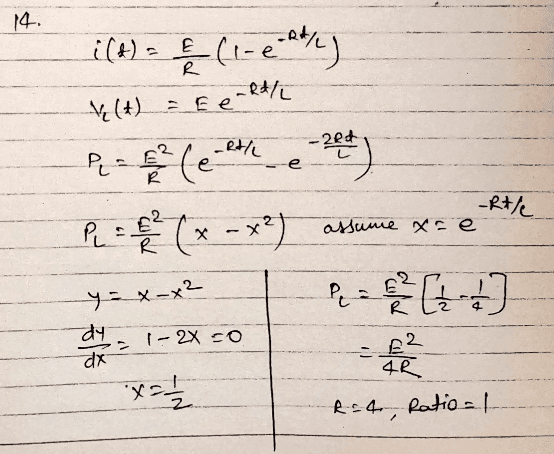 14.
i(t) = E/R (1-e^-Rt/L)
V_L(t) = E e^-Rt/L
P_L = E²/R (e^-Rt/L - e^-2Rt/L)
P_L = E²/R (x - x²) assume x = e^-Rt/L
y = x - x²
dy/dx = 1 - 2x = 0
x = 1/2
P_L = E²/R [1/2 - 1/4]
= E²/4R
R = 4, Ratio = 1